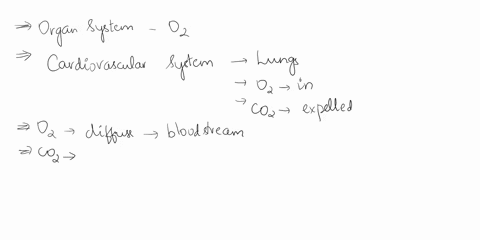 ⇒ Organ System - O₂
⇒ Cardiovascular System → Lungs
→ O₂ → in
→ CO₂ → expelled
⇒ O₂ → diffuse → bloodstream
⇒ CO₂ →